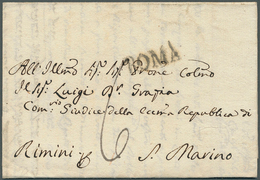 ROMA
All' Illmo Sig. Sig. Prone Colmo
Il Sig. Luigi Grazia
Com.rio Giudice della eccma Republica di
6
Rimini S. Marino